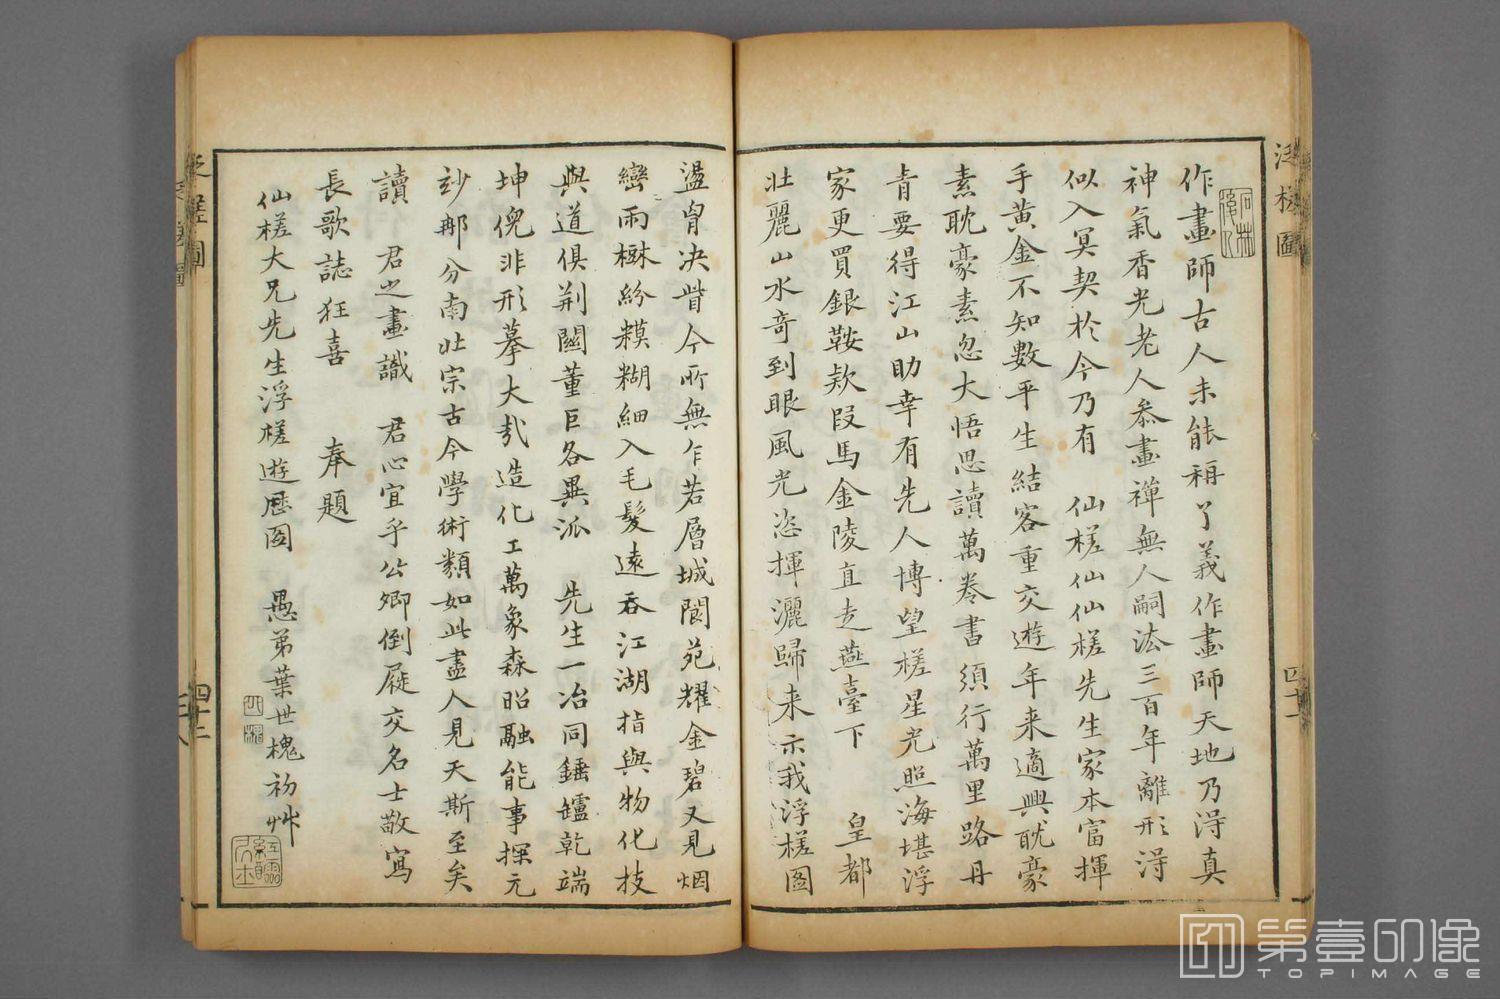 泛槎圖
四十一
作畫師古人未能稱了義作畫師天地乃淂真
神氣香光老人叅畫禪無人嗣法三百年離形淂
似入冥契於今乃有　仙槎仙仙槎先生家本富揮
手黃金不知數平生結客重交遊年来適興耽豪
素耽豪素忽大悟思讀萬卷書須行萬里路丹
青要得江山助幸有先人博望槎星光照海堪浮
家更買銀鞍欵段馬金陵直走燕臺下　皇都
壯麗山水竒到眼風光恣揮灑歸来示我浮槎圖
盪胷决眥今所無乍若層城閬苑耀金碧又見烟
巒雨樾紛糢糊細入毛髮遠吞江湖指與物化技
與道俱荆關董巨各異派　先生一冶同錘鑪乾端
坤倪非形摹大哉造化工萬象森昭融能事探元
玅那分南北宗古今學術類如此盡人見天斯至矣
讀　君之畫識　君心宜乎公卿倒屣交名士敬寫
長歌誌狂喜　奉題
仙槎大兄先生浮槎遊歷圖　愚弟葉世槐初艸
泛槎圖
四十二
第壹印像
TOPIMAGE